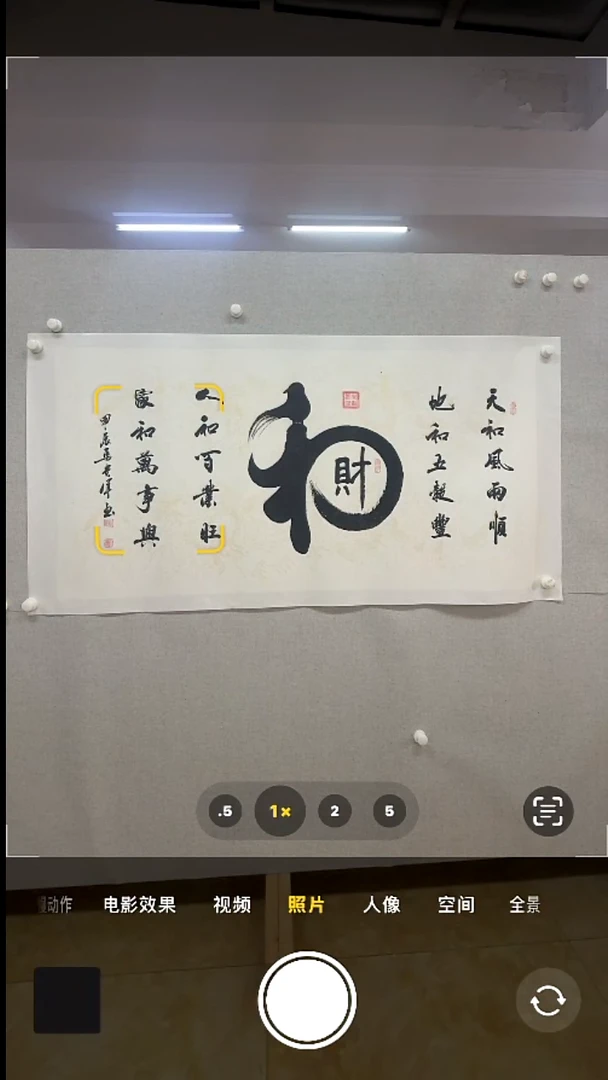 天和風雨順
地和五穀豐
和
財
人和百業旺
家和萬事興
甲辰年
.5
1×
2
5
动作
电影效果
视频
照片
人像
空间
全景